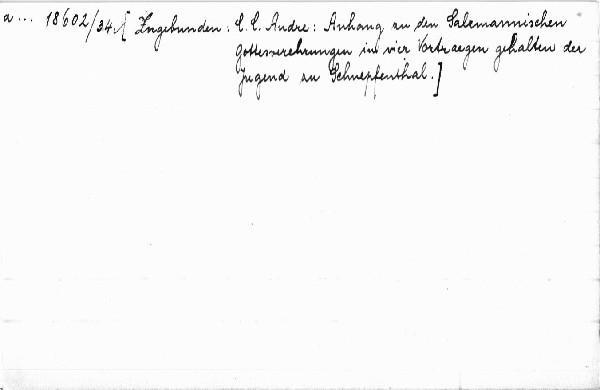 a ... 18602/34. [Zugebunden: C. C. Andre: Anhang zu den Salzmannischen
Gottesverehrungen in vier Vortraegen gehalten der
Jugend zu Schnepfenthal.]